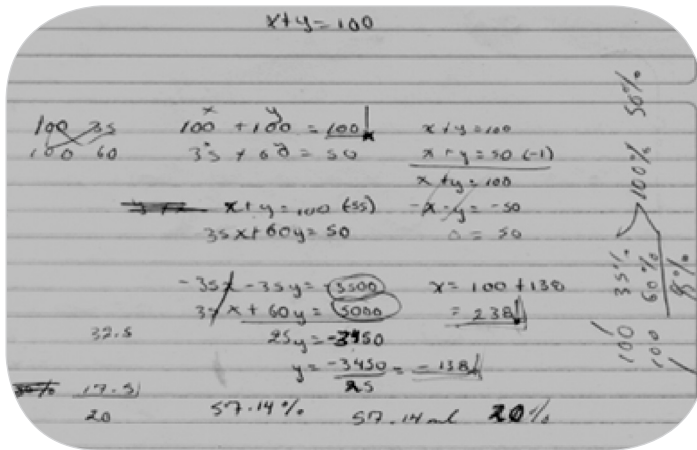 x+y=100
100 35
100 60
x y
100 + 100 = 100
35 + 60 = 50
x+y=100
x+y=50 (-1)
x+y=100
-x-y=-50
0=50
x+y=100 (-35)
35x+60y=50
-35x-35y=-3500
35x+60y=5000
25y=-3450
y=-3450/25=-138
x=100+138
=238
32.5
17.5
20
57.14% 57.14ml 20%
100 35% 100% 50%
100 60%